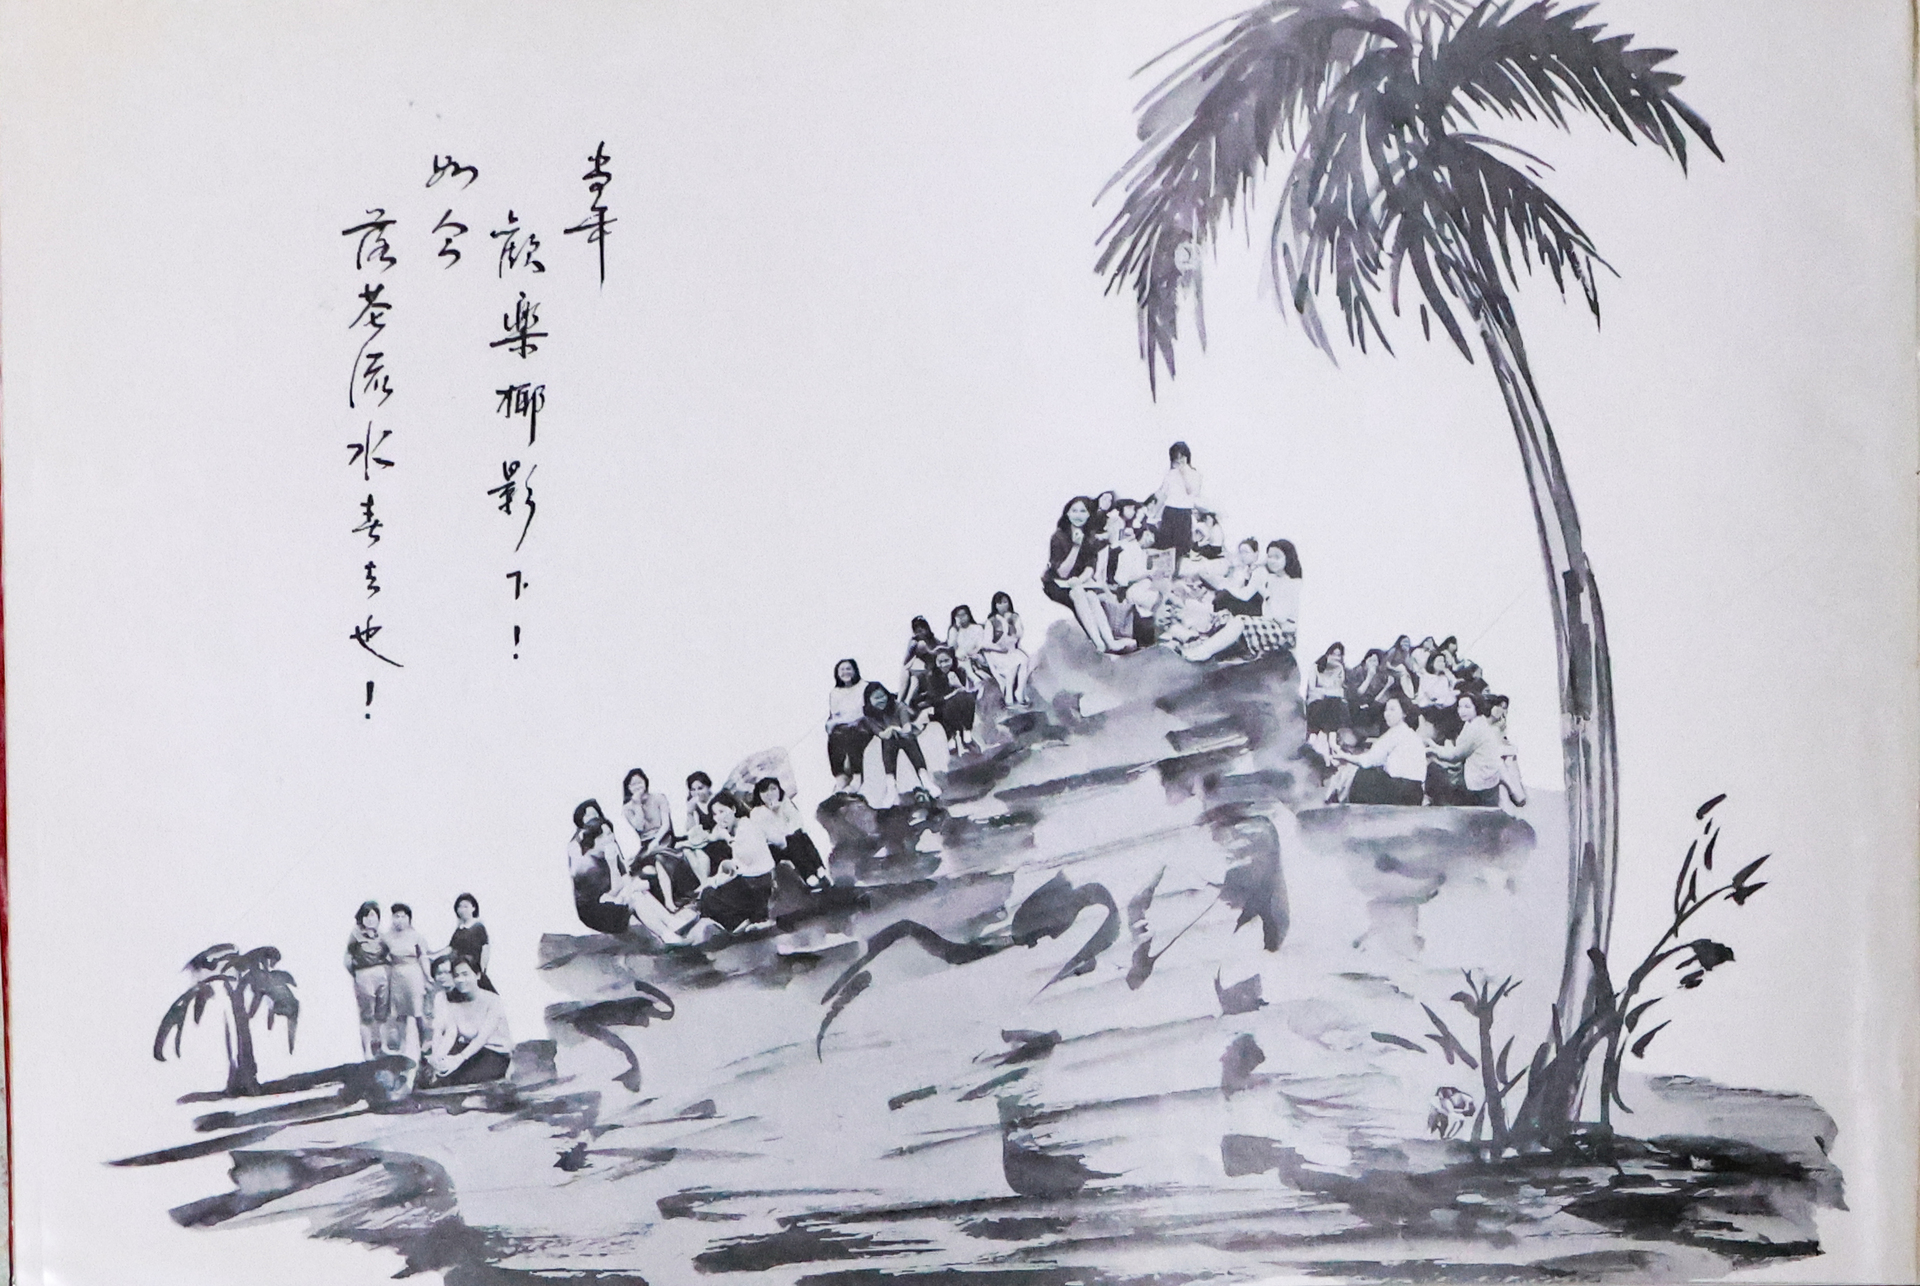 當年
歡樂椰影下!
如今
落花流水春去也!